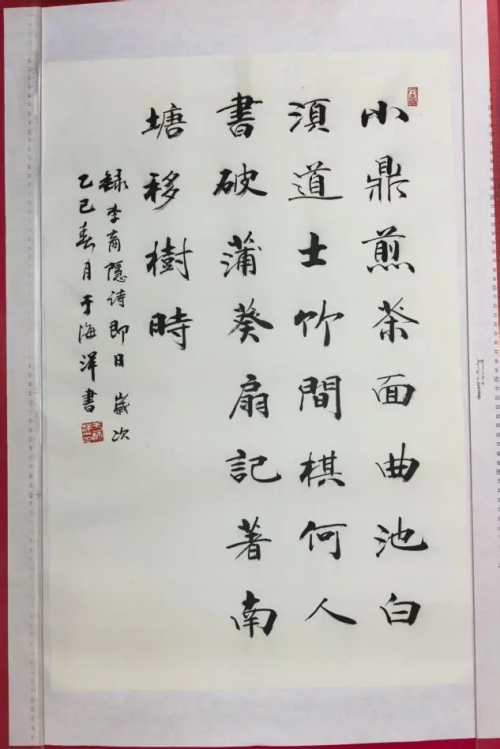 小鼎煎茶面曲池白
須道士竹間棋何人
書破蒲葵扇記著南
塘移樹時
録李商隱詩即日 歲次
乙巳春月于海洋書